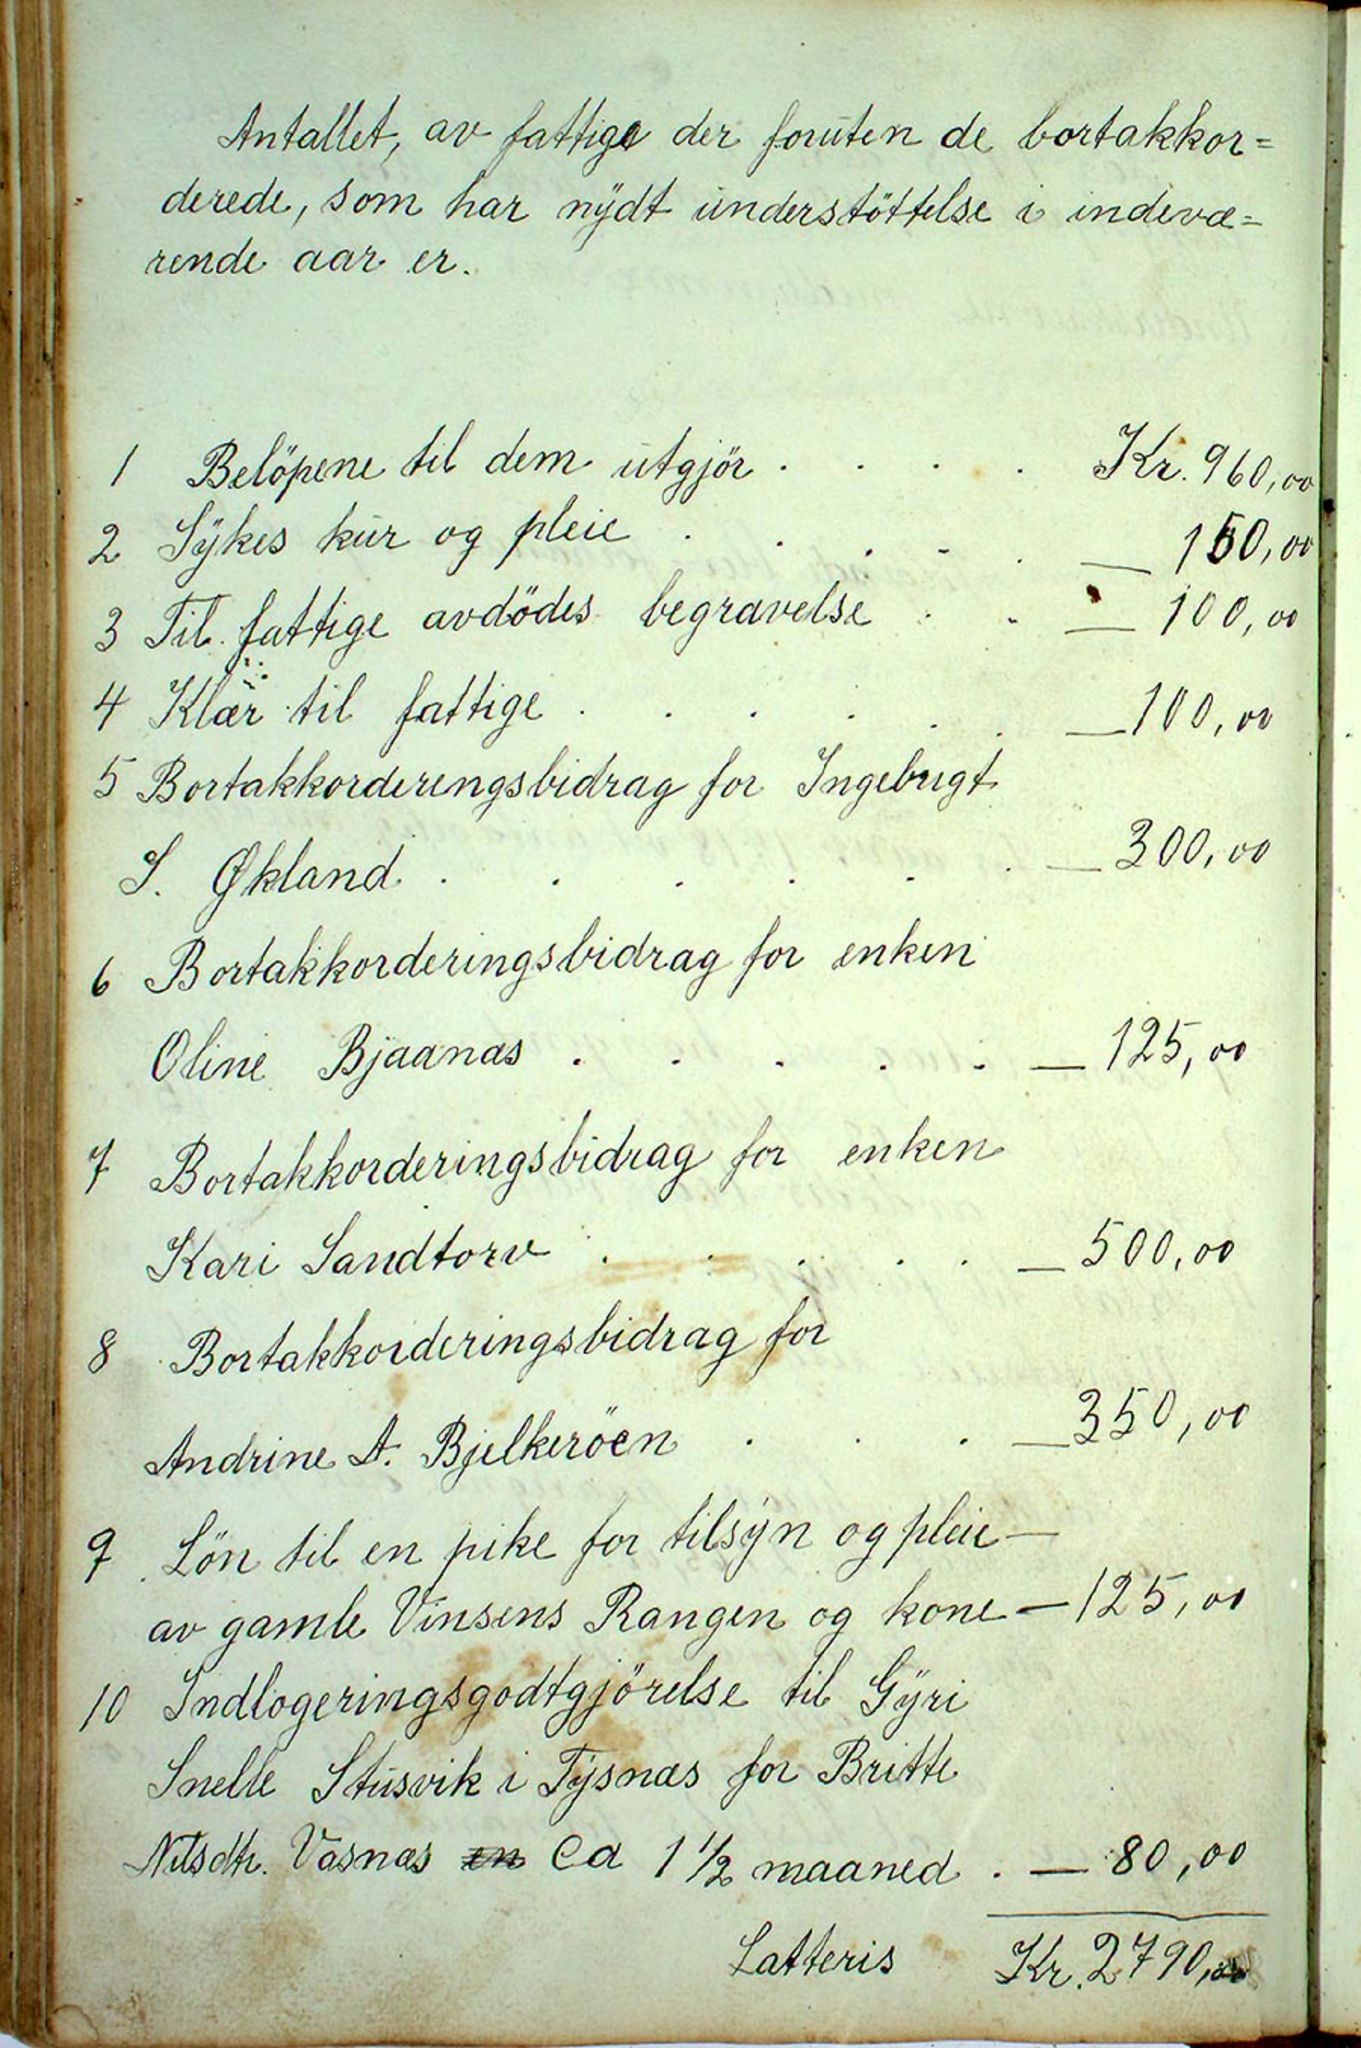 Antallet, av fattige der foruten de bortakkor=
derede, som har nydt understöttelse i indevæ=
rende aar er.
1 Belöpene til dem utgjör . . . . Kr. 960,00
2 Sykes kur og pleie . . . . . — 150,00
3 Til fattige avdödes begravelse . . — 100,00
4 Klær til fattige . . . . . . — 100,00
5 Bortakkorderingsbidrag for Ingebrigt
S. Økland . . . . . . — 300,00
6 Bortakkorderingsbidrag for enken
Oline Bjaanæs . . . . . — 125,00
7 Bortakkorderingsbidrag for enken
Kari Sandtorv . . . . . — 500,00
8 Bortakkorderingsbidrag for
Andrine A. Bjelkeröen . . . — 350,00
9 Lön til en pike for tilsyn og pleie —
av gamle Vinsens Rangen og kone — 125,00
10 Indlogeringsgodtgjörelse til Gyri
Snelle Stusvik i Tysnæs for Britte
Nilsdtr. Vasnæs en Ca 1 1/2 maaned . — 80,00
Latteris Kr. 2790,00